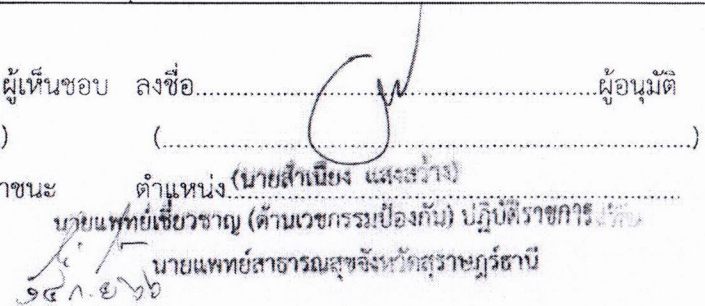 ผู้เห็นชอบ ลงชื่อ..............................................................ผู้อนุมัติ
) (..............................................................................)
าชนะ ตำแหน่ง (นายสำเนียง แสงสว่าง)
นายแพทย์เชี่ยวชาญ (ด้านเวชกรรมป้องกัน) ปฏิบัติราชการ
นายแพทย์สาธารณสุขจังหวัดสุราษฎร์ธานี
๑๔ ก.ย ๖๖